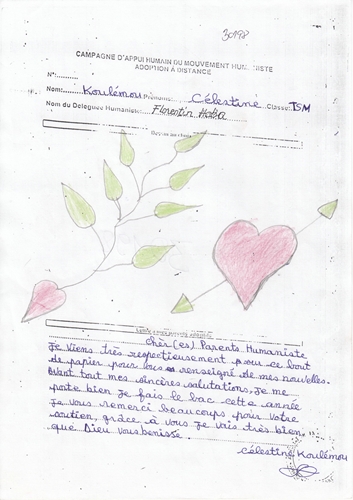 30197
CAMPAGNE D'APPUI HUMAIN DU MOUVEMENT HUMANISTE
ADOPTION À DISTANCE
N°:..........
Nom:........Koulémou Prénoms:....... Célestine Classe: TSM
Nom du Délégué Humaniste: Florentin Haba
Cher(es) Parents Humaniste
Je viens très respectieusement pour ce bout
de papier pour vous renseigné de mes nouvelles.
Avant tout mes sincères salutations, je me
porte bien je fais le bac cette année
Je vous remerci beaucoups pour votre
soutien, grâce à vous je vais très bien,
que Dieu vous benisse.
Célestine Koulémou